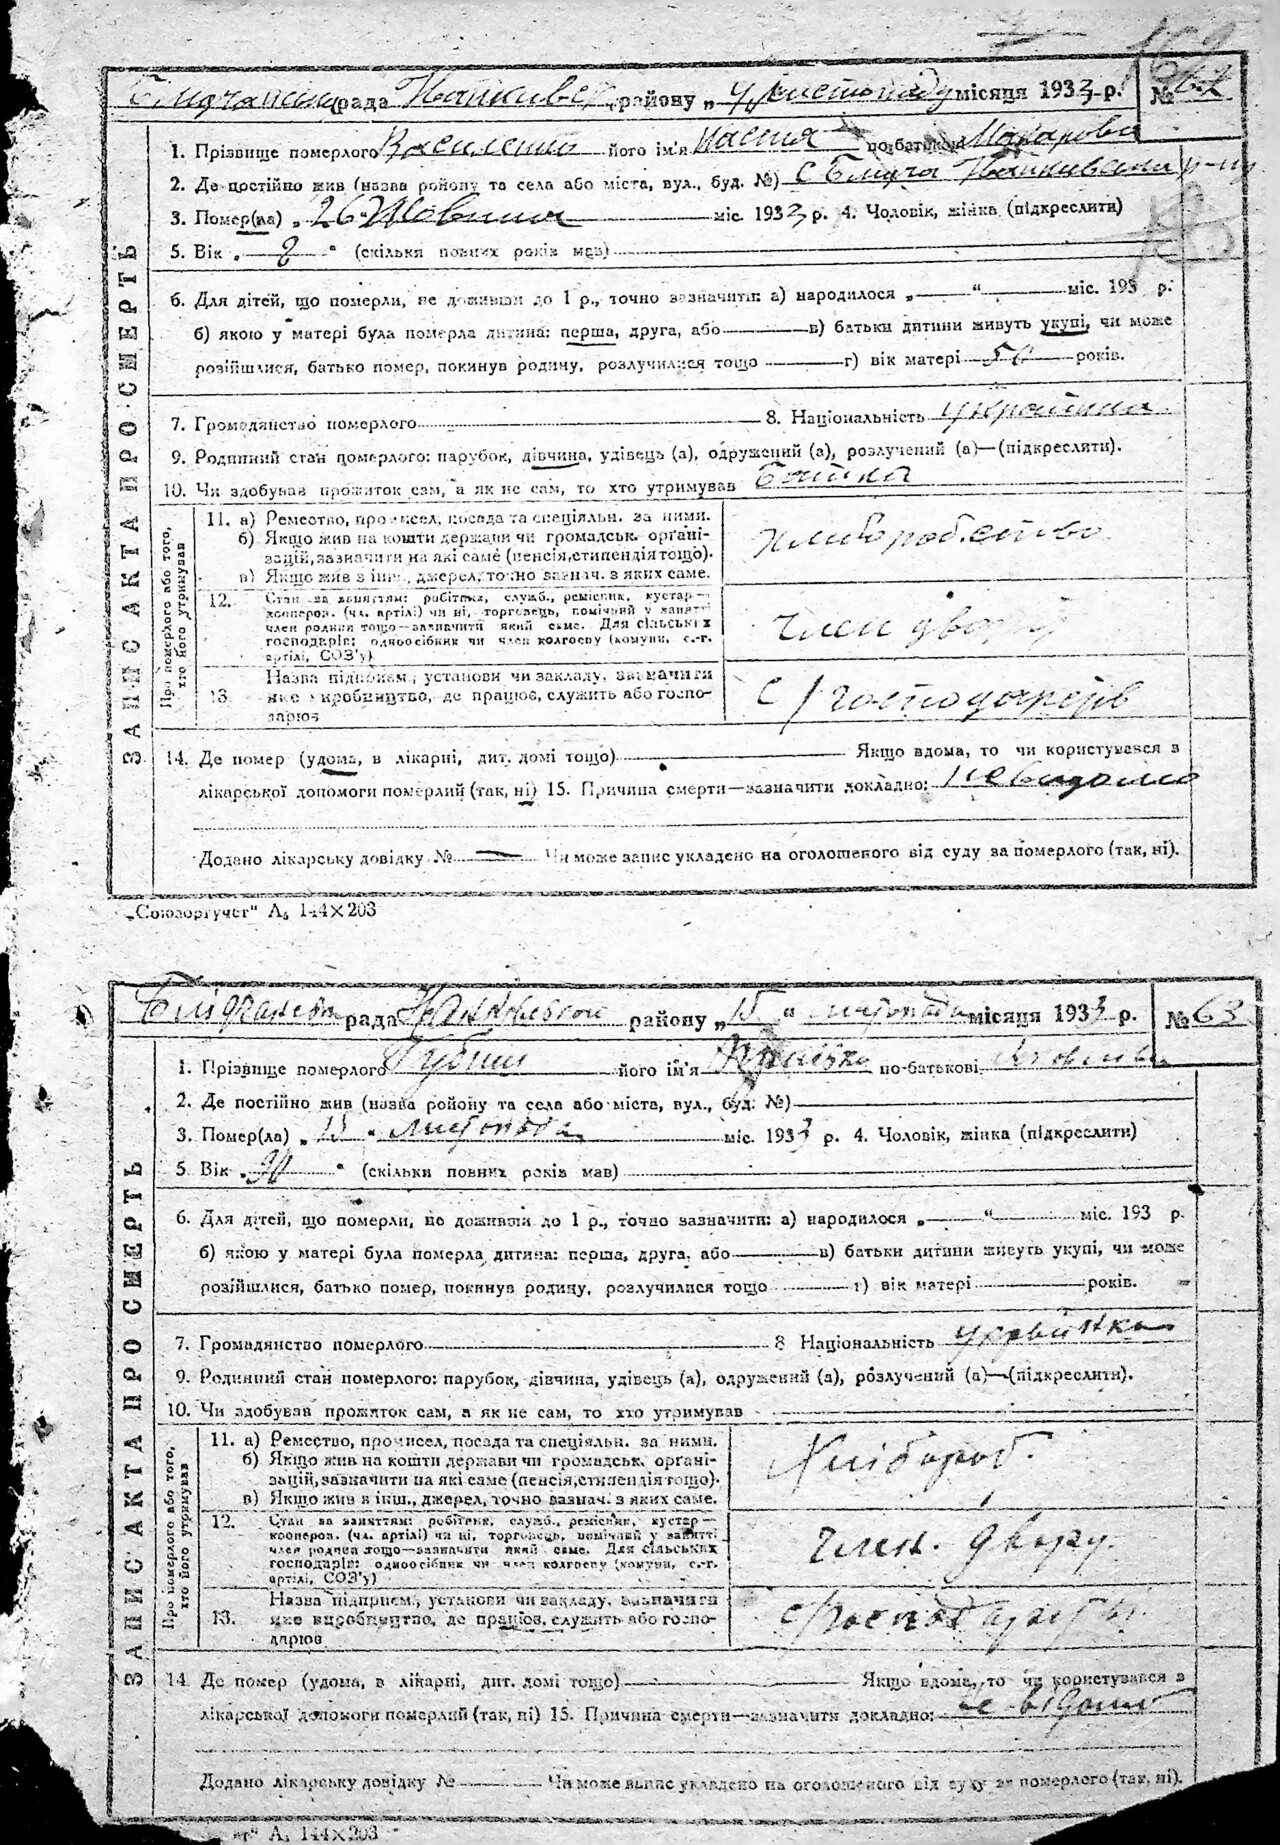 рада району „ 4 " листопаду місяця 1933 р. № 62
1. Прізвище померлого Василенко його ім'я Настя по-батькові Макарови
2. Де постійно жив (назва району та села або міста, вул., буд. №) с
3. Помер(ла) „ 26 " Жовтня міс. 1933 р. 4. Чоловік, жінка (підкреслити)
5. Вік „ 2 " (скільки повних років мав)
6. Для дітей, що померли, не доживши до 1 р., точно зазначити: а) народилося „ — “ міс. 193 р.
б) якою у матері була померла дитина: перша, друга, або — в) батьки дитини живуть укупі, чи може
розійшлися, батько помер, покинув родину, розлучилися тощо — г) вік матері років.
7. Громадянство померлого 8. Національність Україніка
9. Родинний стан померлого: парубок, дівчина, удівець (а), одружений (а), розлучений (а)—(підкреслити).
10. Чи здобував прожиток сам, а як не сам, то хто утримував Батько
ЗАПИС АКТА ПРО СМЕРТЬ
Про померлого або того, хто його утримував
11. а) Ремество, промисел, посада та спеціяльн. за ними.
б) Якщо жив на кошти держави чи громадськ. органі-
зацій, зазначити на які саме (пенсія, стипендія тощо).
в) Якщо жив з інш., джерел, точно зазнач. з яких саме.
хліборобство
12. Стан за заняттям: робітник, служб., ремісник, кустар—
кооперов. (чл. артілі) чи ні, торговець, помічний у занятті
член родини тощо—зазначити який саме. Для сільських
господарів: одноосібник чи член колгоспу (комуни, с.-г.
артілі, СОЗ'у)
член двору
13. Назва підприєм., установи чи закладу, зазначити
яке виробництво, де працює, служить або госпо-
дарює
с/господарств
14. Де помер (удома, в лікарні, дит. домі тощо) Якщо вдома, то чи користувався з
лікарської допомоги померлий (так, ні) 15. Причина смерти—зазначити докладно: невидомо
Додано лікарську довідку № — Чи може запис укладено на оголошеного від суду за померлого (так, ні).
„Союзоргучет“ А₅ 144×203
рада району „ 15 " листопада місяця 1933 р. № 63
1. Прізвище померлого його ім'я по-батькові
2. Де постійно жив (назва району та села або міста, вул., буд. №)
3. Помер(ла) „ 15 " листопада міс. 1933 р. 4. Чоловік, жінка (підкреслити)
5. Вік „ 30 " (скільки повних років мав)
6. Для дітей, що померли, не доживши до 1 р., точно зазначити: а) народилося „ — “ міс. 193 р.
б) якою у матері була померла дитина: перша, друга, або — в) батьки дитини живуть укупі, чи може
розійшлися, батько помер, покинув родину, розлучилися тощо — г) вік матері років.
7. Громадянство померлого 8 Національність українка
9. Родинний стан померлого: парубок, дівчина, удівець (а), одружений (а), розлучений (а)—(підкреслити).
10. Чи здобував прожиток сам, а як не сам, то хто утримував
ЗАПИС АКТА ПРО СМЕРТЬ
Про померлого або того, хто його утримував
11. а) Ремество, промисел, посада та спеціяльн. за ними.
б) Якщо жив на кошти держави чи громадськ. органі-
зацій, зазначити на які саме (пенсія, стипендія тощо).
в) Якщо жив з інш., джерел, точно зазнач. з яких саме.
Хлібороб.
12. Стан за заняттям: робітник, служб., ремісник, кустар—
кооперов. (чл. артілі) чи ні, торговець, помічний у занятті
член родини тощо—зазначити який саме. Для сільських
господарів: одноосібник чи член колгоспу (комуни, с.-г.
артілі, СОЗ'у)
член. двору.
13. Назва підприєм., установи чи закладу, зазначити
яке виробництво, де працює, служить або госпо-
дарює
14 Де помер (удома, в лікарні, дит. домі тощо) Якщо вдома, то чи користувався з
лікарської допомоги померлий (так, ні) 15. Причина смерти—зазначити докладно: не відомо
Додано лікарську довідку № — Чи може запис укладено на оголошеного від суду за померлого (так, ні).
ет“ А₅ 144×203